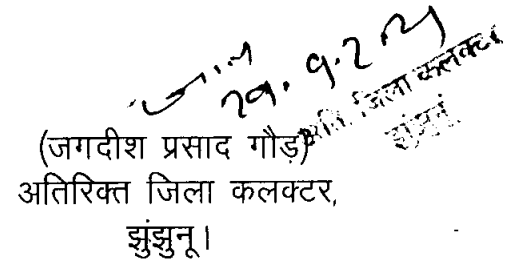 अति. जिला कलक्टर
झुंझुनू
(जगदीश प्रसाद गौड़)
अतिरिक्त जिला कलक्टर,
झुंझुनू।